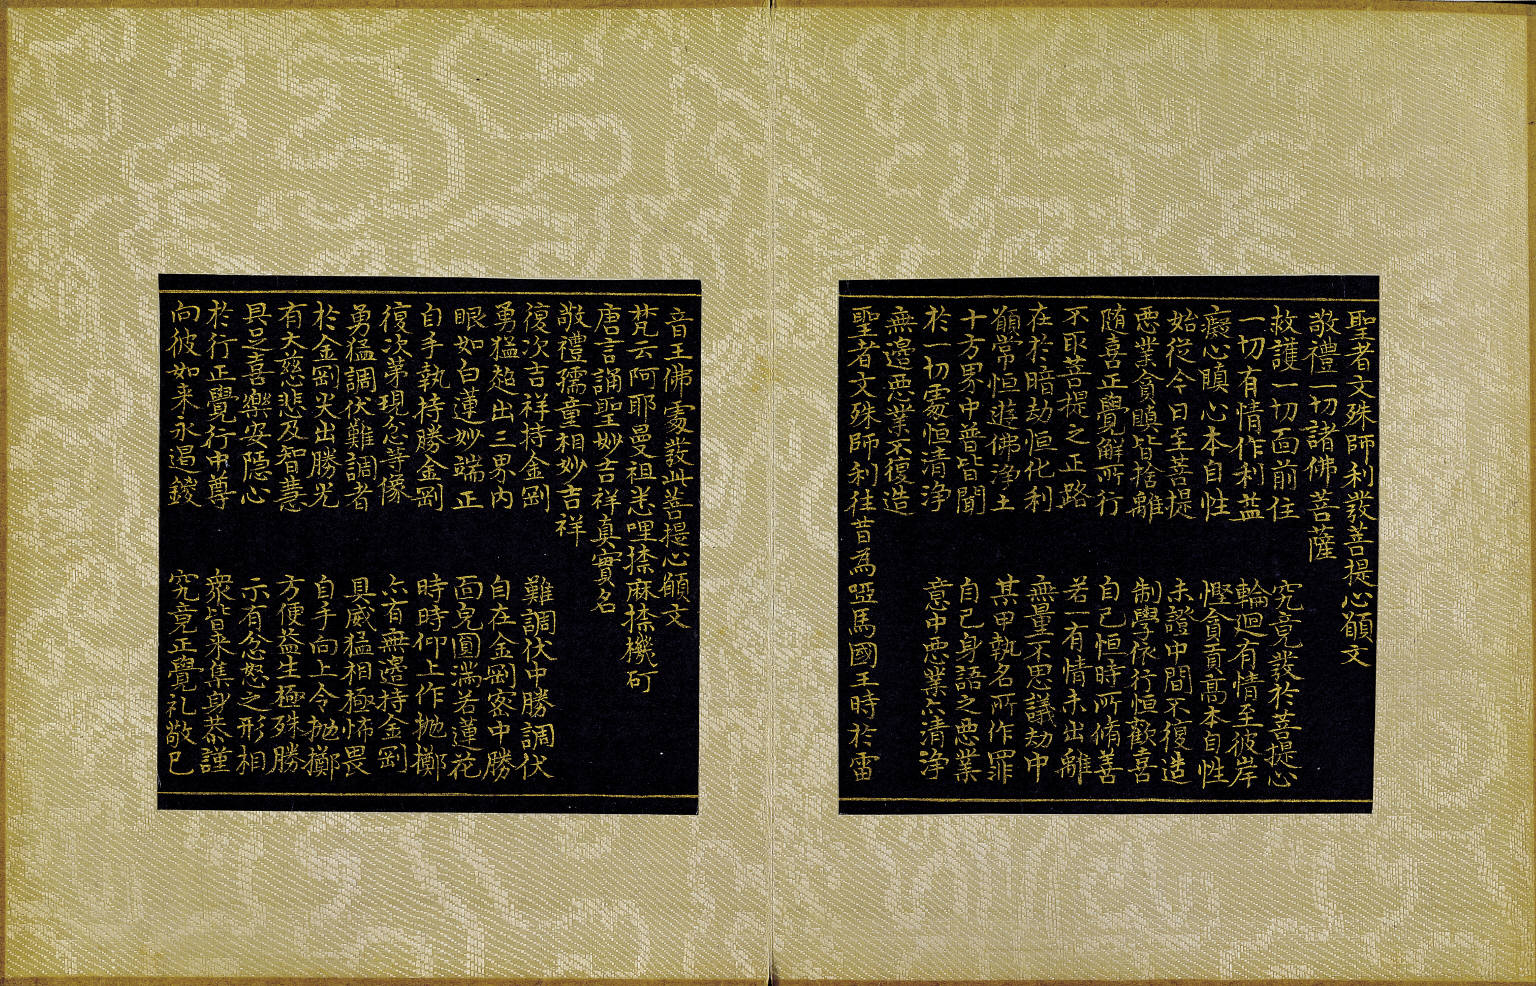 聖者文殊師利發菩提心願文
敬禮一切諸佛菩薩
救護一切面前住 究竟發於菩提心
一切有情作利益 輪迴有情至彼岸
癡心瞋心本自性 慳貪貢高本自性
始從今日至菩提 未證中間不復造
悪業貪瞋皆捨離 制學依行恒歡喜
随喜正覺解所行 自己恒時所脩善
不退菩提之正路 若一有情未出離
在於暗劫恒化利 無量不思議劫中
願常恒遊佛浄土 某甲執名所作罪
十方界中普皆聞 自己身語之悪業
於一切處恒清浄 意中悪業亦清浄
無邊悪業不復造
聖者文殊師利往昔為啞馬國王時於雷
音王佛處發此菩提心願文
梵云阿耶曼祖悉哩捺麻捺機矴
唐言誦聖妙吉祥真實名
敬禮孺童相妙吉祥
復次吉祥持金剛 難調伏中勝調伏
勇猛超出三界内 自在金剛密中勝
眼如白蓮妙端正 面皃圓滿若蓮花
自手執持勝金剛 時時仰上作抛擲
復次第現忿等像 亦有無邊持金剛
勇猛調伏難調者 具威猛相極怖畏
於金剛尖出勝光 自手向上令抛擲
有大慈悲及智慧 方便益生極殊勝
具足喜樂安隱心 示有忿怒之形相
於行正覺行中尊 衆皆來集身恭謹
向彼如来永遏鍐 究竟正覺礼敬已